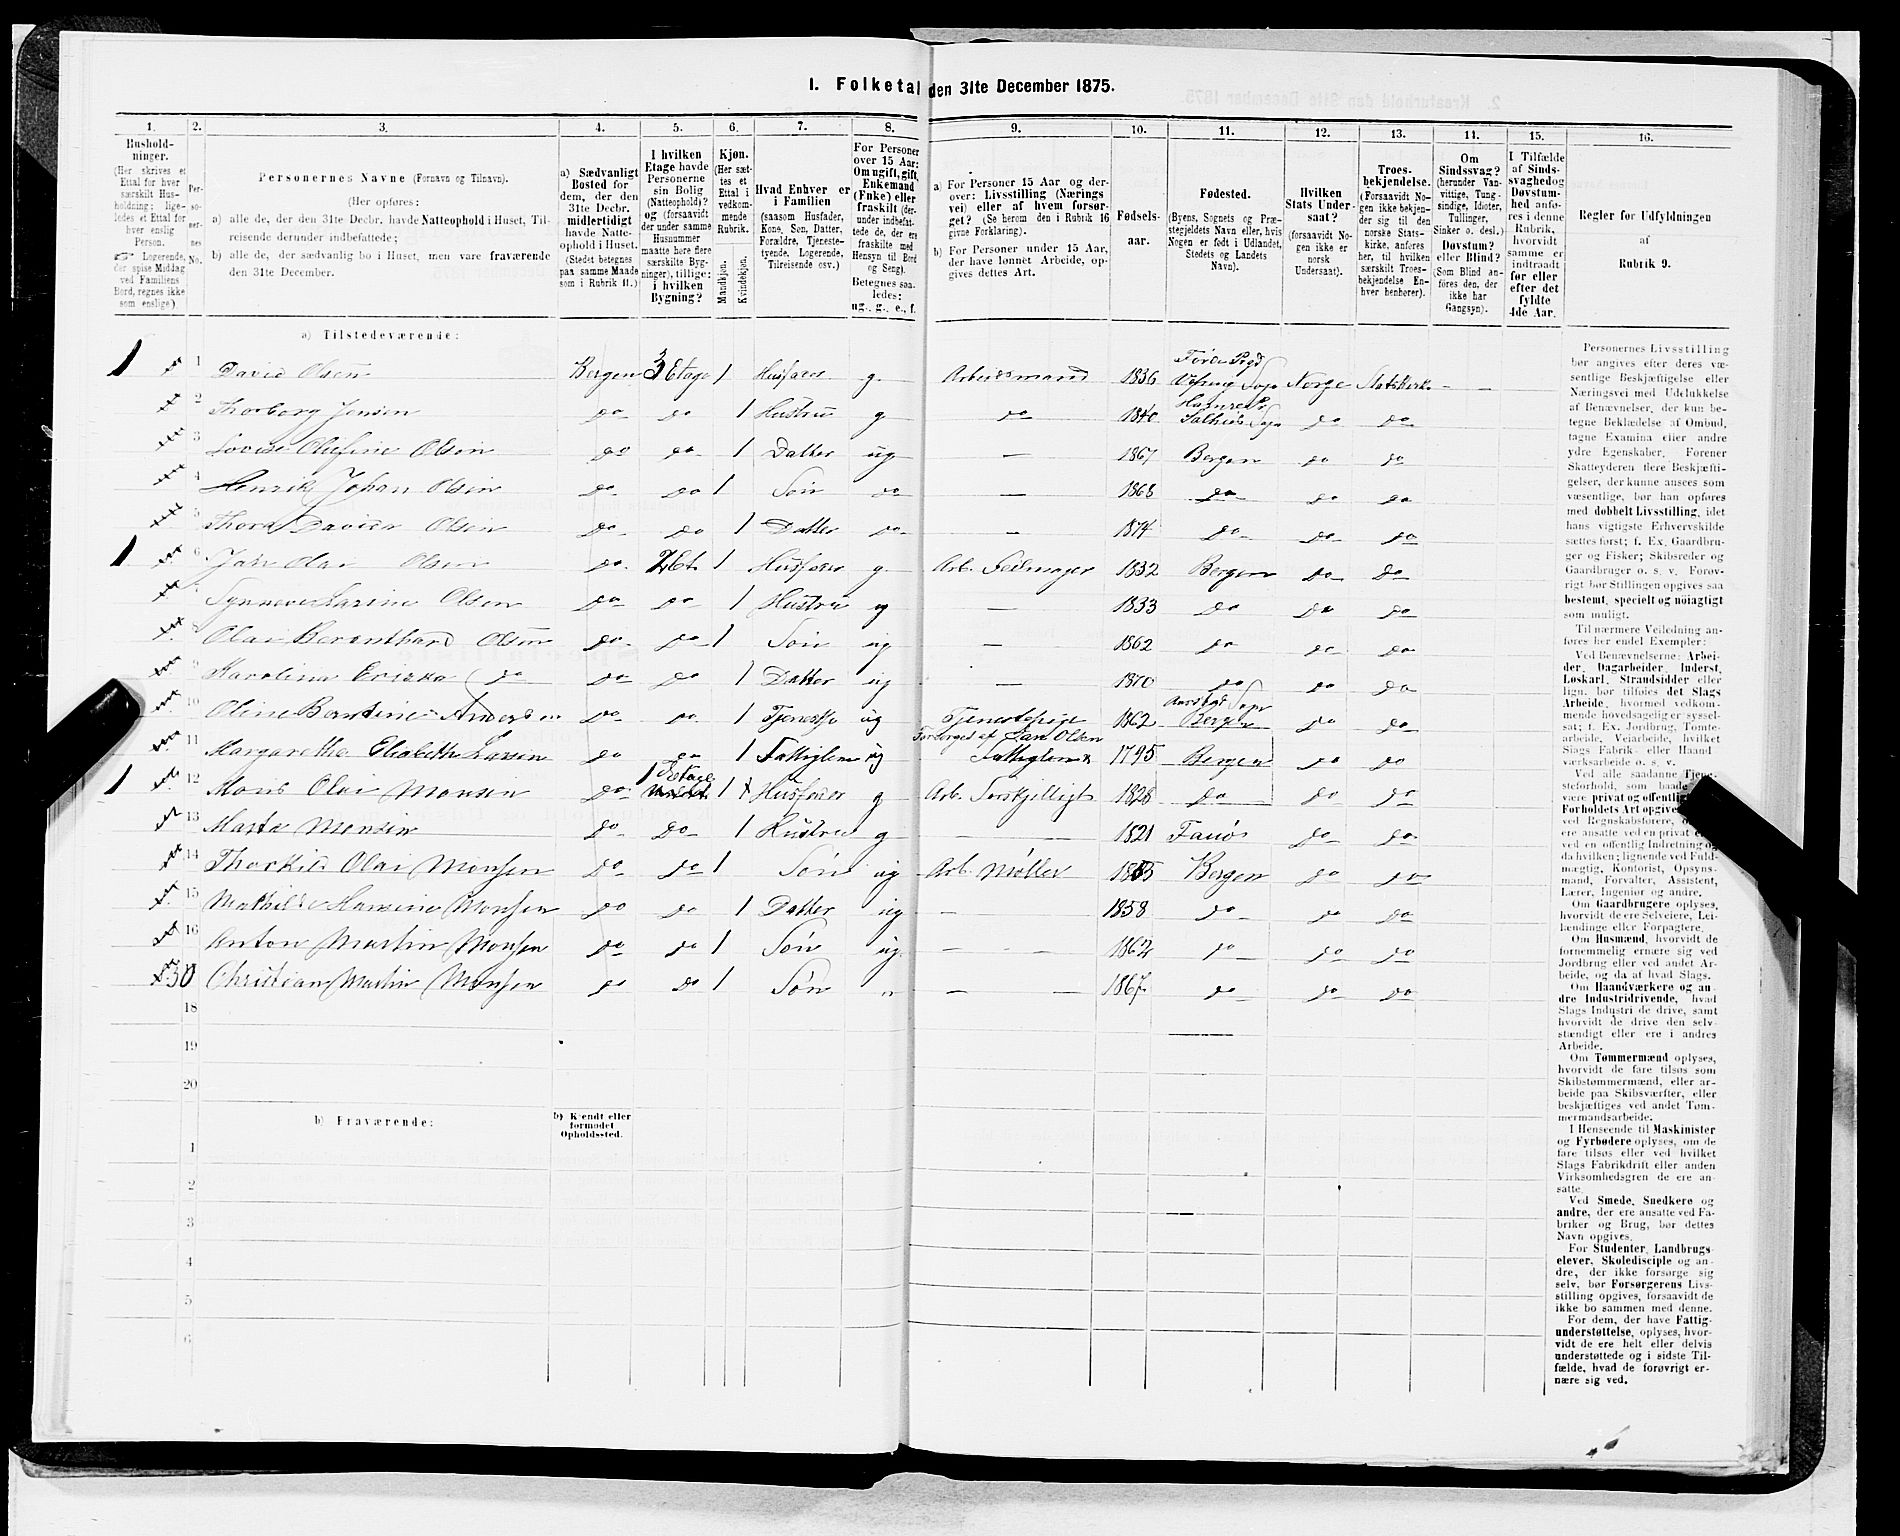 1. Folketal den 31te December 1875.
1. 2. 3. 4. 5. 6. 7. 8. 9. 10. 11. 12. 13. 14. 15. 16.
Hushold-
ninger.
(Her skrives et
Ettal for hver
særskilt Hus-
holdning; lige-
ledes et Ettal for
hver enslig
Person.
Logerende,
der spise Middag
ved Familiens
Bord, regnes ikke
som enslige)
Per-
so-
ner-
nes
No.
Personernes Navne (Fornavn og Tilnavn).
(Her opføres:
a) alle de, der den 31te Decbr. havde Natteophold i Huset, Til-
reisende derunder indbefattede;
b) alle de, der sædvanlig bo i Huset, men vare fraværende
den 31te December.
a) Sædvanligt
Bosted for
dem, der den
31te Decbr.
midlertidigt
havde Natte-
ophold i Huset.
(Stedet betegnes
paa samme Maade
som i Rubrik 11.)
I hvilken
Etage havde
Personerne
sin Bolig
(Natteophold)?
og (forsaavidt
der under samme
Husnummer
maatte høre flere
særskilte Byg-
ninger), tillige:
i hvilken
Bygning?
Kjøn.
(Her sæt-
tes et
Ettal i
vedkom-
mende
Rubrik.
Mandkjøn.
Kvindekjøn.
Hvad Enhver er
i Familien
(saasom Husfader,
Kone, Søn, Datter,
Forældre, Tjeneste-
tyende, Logerende,
Tilreisende osv.)
For Personer
over 15 Aar:
Om ugift, gift,
Enkemand
(Enke) eller
fraskilt (der-
under indbefat-
tede de, der ere
fraskilte med
Hensyn til Bord
og Seng).
Betegnes saa-
ledes:
ug., g., e., f.
a) For Personer 15 Aar og der-
over: Livsstilling (Nærings
vei) eller af hvem forsør-
get? (Se herom den i Rubrik 16
givne Forklaring).
b) For Personer under 15 Aar,
der have lønnet Arbeide, op-
gives dettes Art.
Fødsels-
aar.
Fødested.
(Byens, Sognets og Præ-
stegjeldets Navn eller, hvis
Nogen er født i Udlandet,
Stedets og Landets
Navn).
Hvilken
Stats Under-
saat?
(forsaavidt No-
gen ikke er
norsk
Undersaat).
Troes-
bekjendelse.
(Forsaavidt No-
gen ikke bekjen-
der sig til den
norske Stats-
kirke, anføres
her, til hvilken
særskilt Troes-
bekjendelse En-
hver henhører).
Om
Sindssvag?
(herunder Van-
vittige, Tung-
sindige, Idioter,
Tullinger,
Sinker o. desl.)
Døvstum?
eller Blind?
(Som Blind an-
føres den, der
ikke har
Gangsyn).
I Tilfælde
af Sinds-
svaghed og
Døvstum-
hed anfø-
res i denne
Rubrik,
hvorvidt
samme er
indtraadt
før eller
efter det
fyldte
4de Aar.
Regler for Udfyldningen
af
Rubrik 9.
a) Tilstedeværende:
1 1 David Olsen Bergen 3 Etage 1 Husfader g. Arbeidsmand 1836 Førde Prgd Sogn Norge Statskirke
2 Thorborg Jensen do do 1 Hustru g do 1840 Sogn do do
3 Lovise Olufine Olsen do do 1 Datter ug — 1867 Bergen do do
4 Henrik Johan Olsen do do 1 Søn do — 1868 do do do
5 Thora Olsen do do 1 Datter do — 1874 do do do
1 6 Jahn Olai Olsen do 2 Et. 1 Husfader g. Arb. 1832 Bergen do do
7 Synneve Larine Olsen do do 1 Hustru g — 1833 do do do
8 Olai Olsen do do 1 Søn ug — 1862 do do do
9 Karolina Ericka do do do 1 Datter ug — 1870 do do do
10 Oline Bertine Andersen do do 1 ug Tjenestepige 1862 Sogn Bergen do do
Forsørget af Jan Olsen
11 Margaretha Elisabeth Larsen do do 1 Fattiglem ug Fattiglem 1795 Bergen do do
1 12 Mons Olai Monsen do 1 Etage 1 Husfader g Arb. Forskjelligt 1828 do do do
13 Marta Monsen do do 1 Hustru g — 1821 Fanøs do do
14 Thorkild Olai Monsen do do 1 Søn ug Arb. Møller 1855 Bergen do do
15 Mathilde Hansine Monsen do do 1 Datter ug — 1858 do do do
16 Anton Martin Monsen do do 1 Søn ug. — 1862 do do do
30 Christian Martin Monsen do do 1 Søn " — 1867 do do do
18
19
20
b) Fraværende:
b) Kjendt eller
formodet
Opholdssted.
1
2
3
4
5
6
Personernes Livsstilling
bør angives efter deres væ-
sentlige Beskjæftigelse eller
Næringsvei med Udelukkelse
af Benævnelser, der kun be-
tegne Beklædelse af Ombud,
tagne Examina eller andre
ydre Egenskaber. Forener
Skatteyderen flere Beskjæfti-
gelser, der kunne ansees som
væsentlige, bør han opføres
med dobbelt Livsstilling, idet
hans vigtigste Erhvervskilde
sættes først; f. Ex. Gaardbru-
ger og Fisker; Skibsreder og
Gaardbruger o. s. v. Forøv-
rigt bør Stillingen opgives saa
bestemt, specielt og nøiagtigt
som muligt.
Til nærmere Veiledning an-
føres her endel Exempler:
Ved Benævnelserne: Arbei-
der, Dagarbeider, Inderst,
Løskarl, Strandsidder eller
lign. bør tilføies det Slags
Arbeide, hvormed vedkom-
mende hovedsagelig er syssel-
sat; f. Ex. Jordbrug, Tomte-
arbeide, Veiarbeide, hvilket
Slags Fabrik- eller Haand
værksarbeide o. s. v.
Ved alle saadanne Tjene-
steforhold, som baade
være privat og offentlig
Forholdets Art opgives
ved Regnskabsførere,
ere ansatte ved en privat
ved en offentlig Indretning og
da hvilken; lignende ved Fuld-
mægtig, Kontorist, Opsyns-
mand, Forvalter, Assistent,
Lærer, Ingeniør og andre.
Om Gaardbrugere oplyses,
hvorvidt de ere Selveiere, Lei-
lændinge eller Forpagtere.
Om Husmænd, hvorvidt de
fornemmelig ernære sig ved
Jordbrug eller ved andet Ar-
beide, og da af hvad Slags.
Om Haandværkere og an-
dre Industridrivende, hvad
Slags Industri de drive, samt
hvorvidt de drive den selv-
stændigt eller ere i andres
Arbeide.
Om Tømmermænd oplyses,
hvorvidt de fare tilsøs som
Skibstømmermænd, eller ar-
beide paa Skibsværfter, eller
beskjæftiges ved andet Tøm-
mermandsarbeide.
I Henseende til Maskinister
og Fyrbødere oplyses, om de
fare tilsøs eller ved hvilket
Slags Fabrikdrift eller anden
Virksomhedsgren de ere an-
satte.
Ved Smede, Snedkere og
andre, der ere ansatte ved Fa-
briker og Brug, bør dettes
Navn opgives.
For Studenter, Landbrugs-
elever, Skoledisciple og an-
dre, der ikke forsørge sig
selv, bør Forsørgerens Livs-
stilling opgives, forsaavidt de
ikke bo sammen med denne.
For dem, der have Fattig-
understøttelse, oplyses, hvor-
vidt de ere helt eller delvis
understøttede og i sidste Til-
fælde, hvad de forøvrigt er-
nære sig ved.